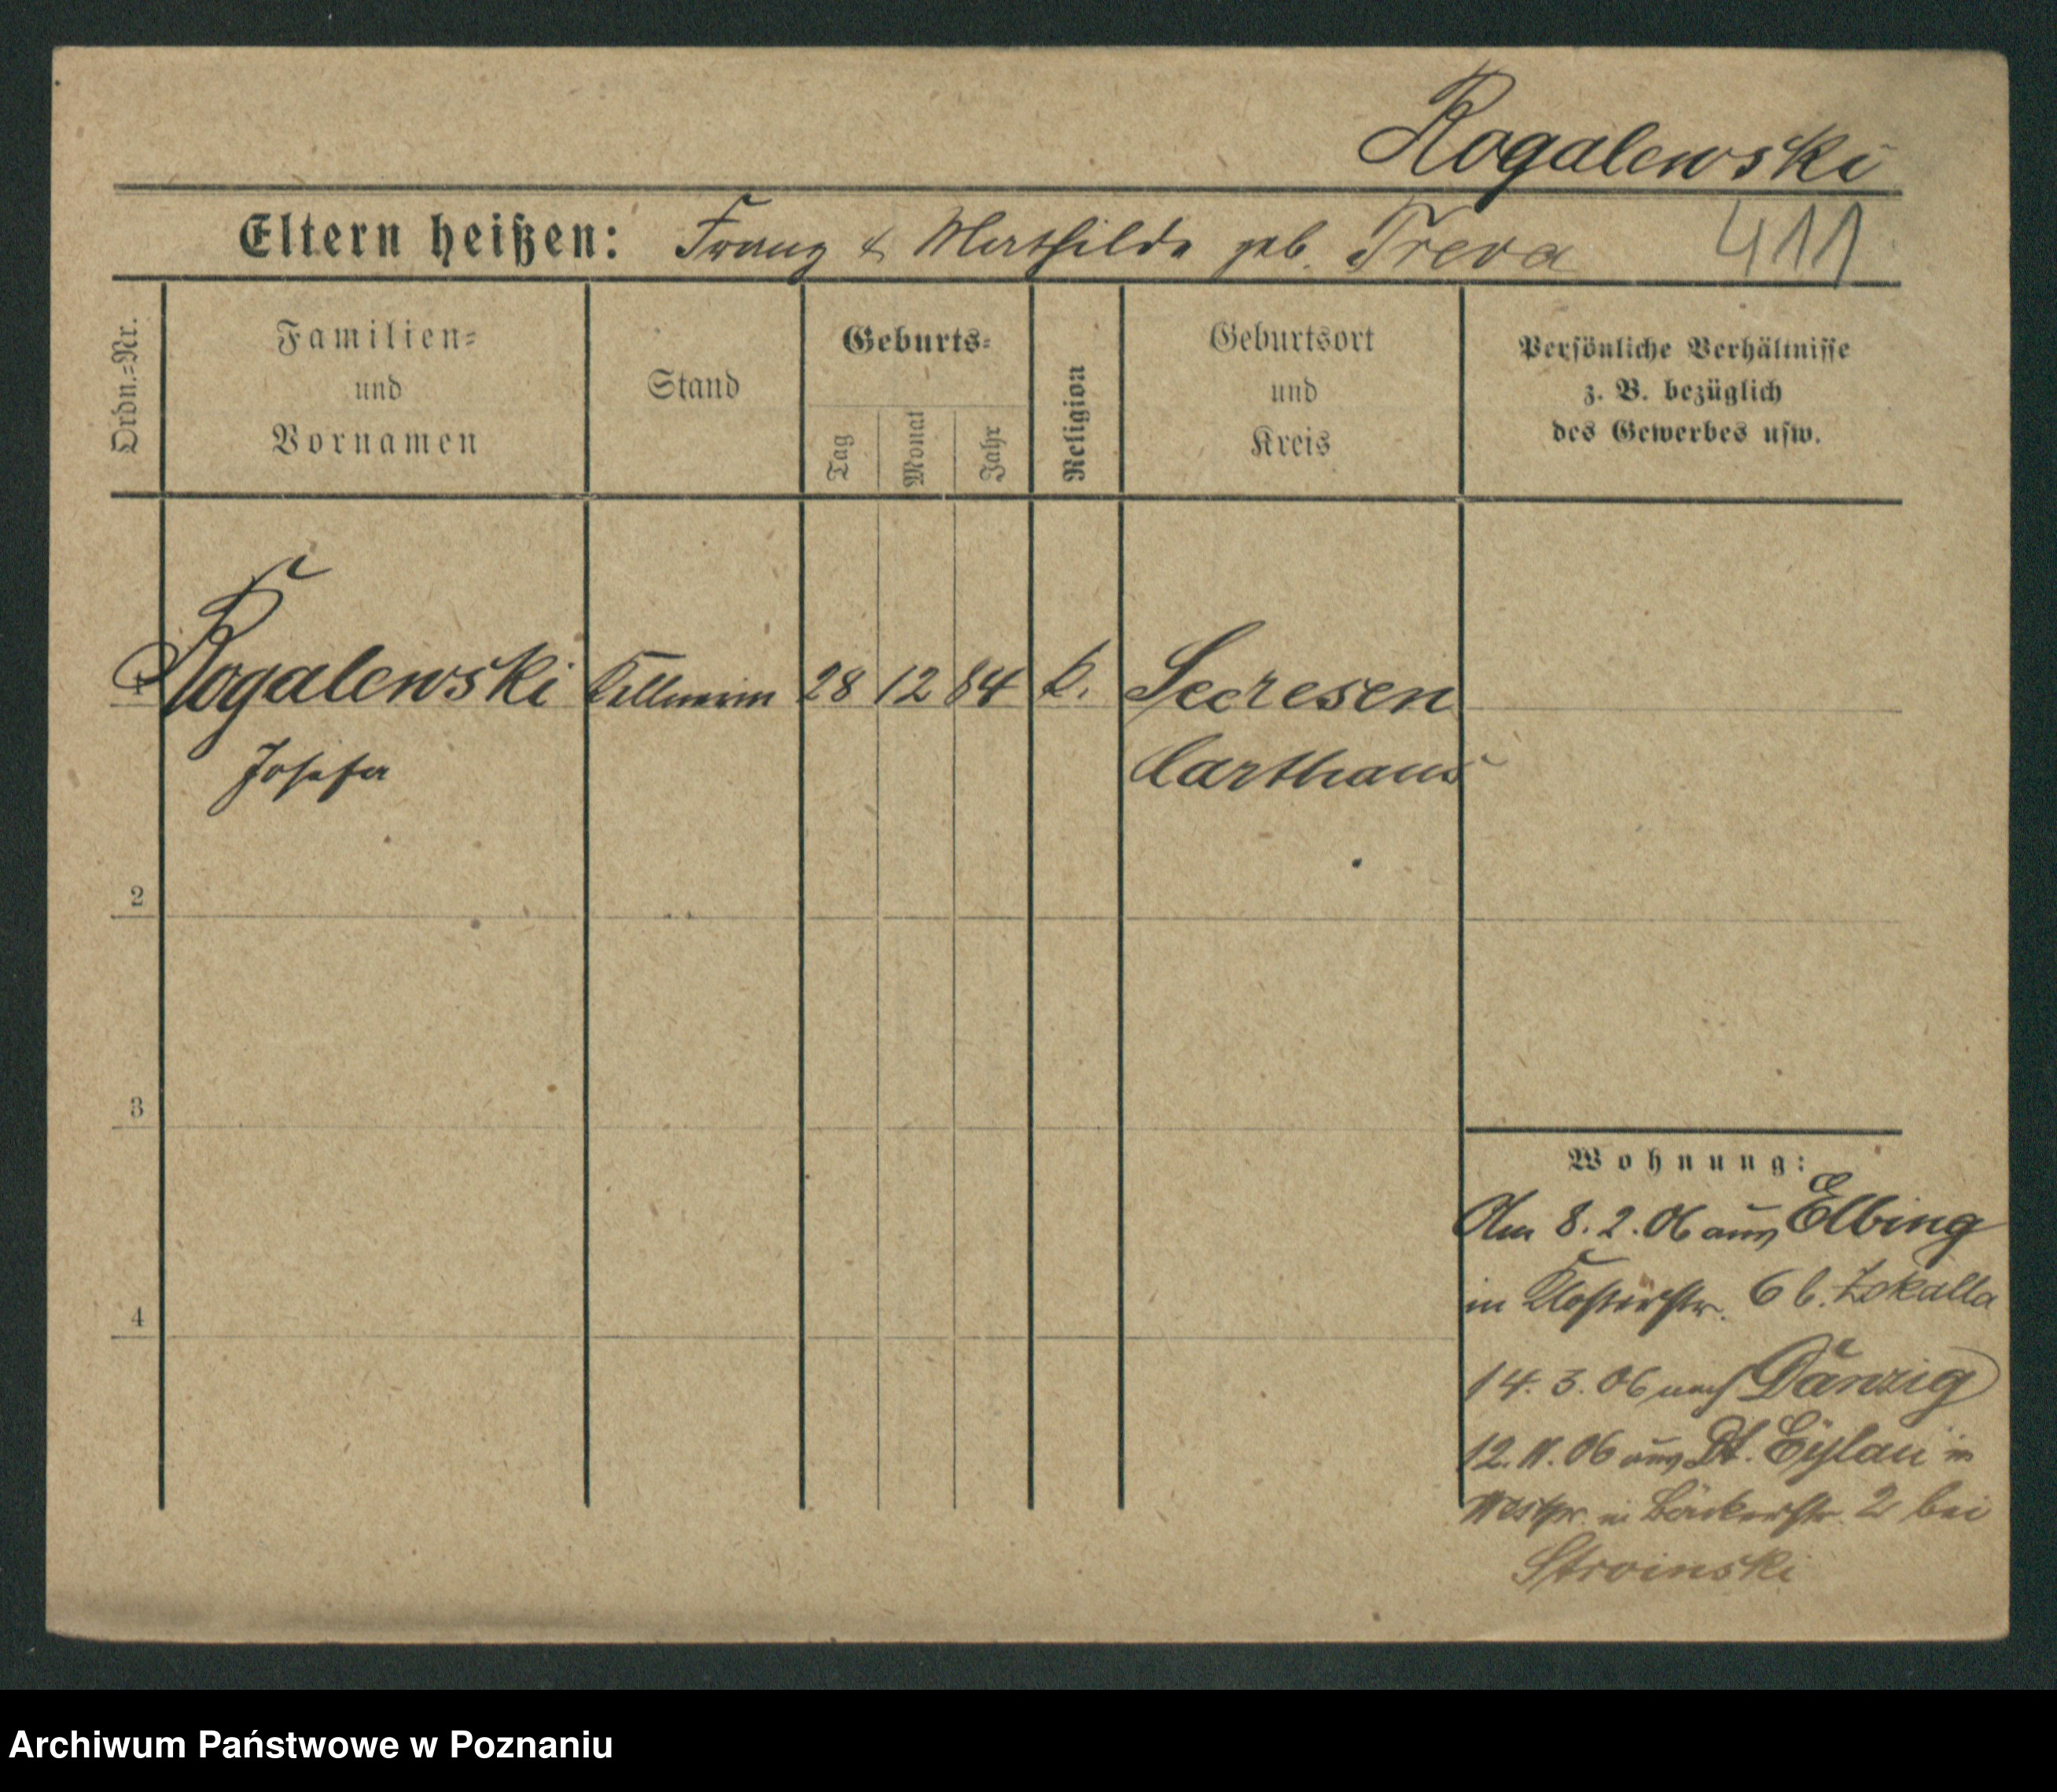 Rogalewski
Eltern heißen: Franz & Mathilde geb. Treva 411
Ordn.=Nr.
Familien=
und
Vornamen
Stand
Geburts=
Tag
Monat
Jahr
Religion
Geburtsort
und
Kreis
Persönliche Verhältnisse
z. B. bezüglich
des Gewerbes usw.
1 Rogalewski Kellnerin 28 12 84 k. Seeresen
Josefa Carthaus
2
3
4
Wohnung:
Am 8. 2. 06 aus Elbing
in Klosterstr. 6 b. Zskalla
14. 3. 06 nach Danzig
12. 11. 06 aus Dt. Eylau in
Westpr. in Bäckerstr. 2 bei
Stroinski
Archiwum Państwowe w Poznaniu